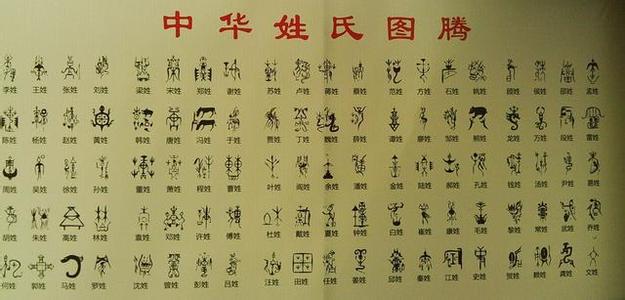 中华姓氏图腾
李姓 王姓 张姓 刘姓 梁姓 宋姓 郑姓 谢姓 苏姓 卢姓 蒋姓 蔡姓 范姓 方姓 石姓 姚姓 顾姓 侯姓 邵姓 孟姓
陈姓 杨姓 赵姓 黄姓 韩姓 唐姓 冯姓 于姓 贾姓 丁姓 魏姓 薛姓 谭姓 廖姓 邹姓 熊姓 龙姓 万姓 段姓 雷姓
周姓 吴姓 徐姓 孙姓 董姓 萧姓 程姓 曹姓 叶姓 阎姓 余姓 潘姓 金姓 陆姓 郝姓 孔姓 钱姓 汤姓 尹姓 葛姓
胡姓 朱姓 高姓 林姓 袁姓 邓姓 许姓 傅姓 杜姓 戴姓 钟姓 夏姓 白姓 崔姓 康姓 毛姓 黎姓 常姓 武姓 乔姓
何姓 郭姓 马姓 罗姓 沈姓 曾姓 彭姓 吕姓 汪姓 田姓 任姓 姜姓 邱姓 秦姓 江姓 史姓 贺姓 赖姓 龚姓 文姓